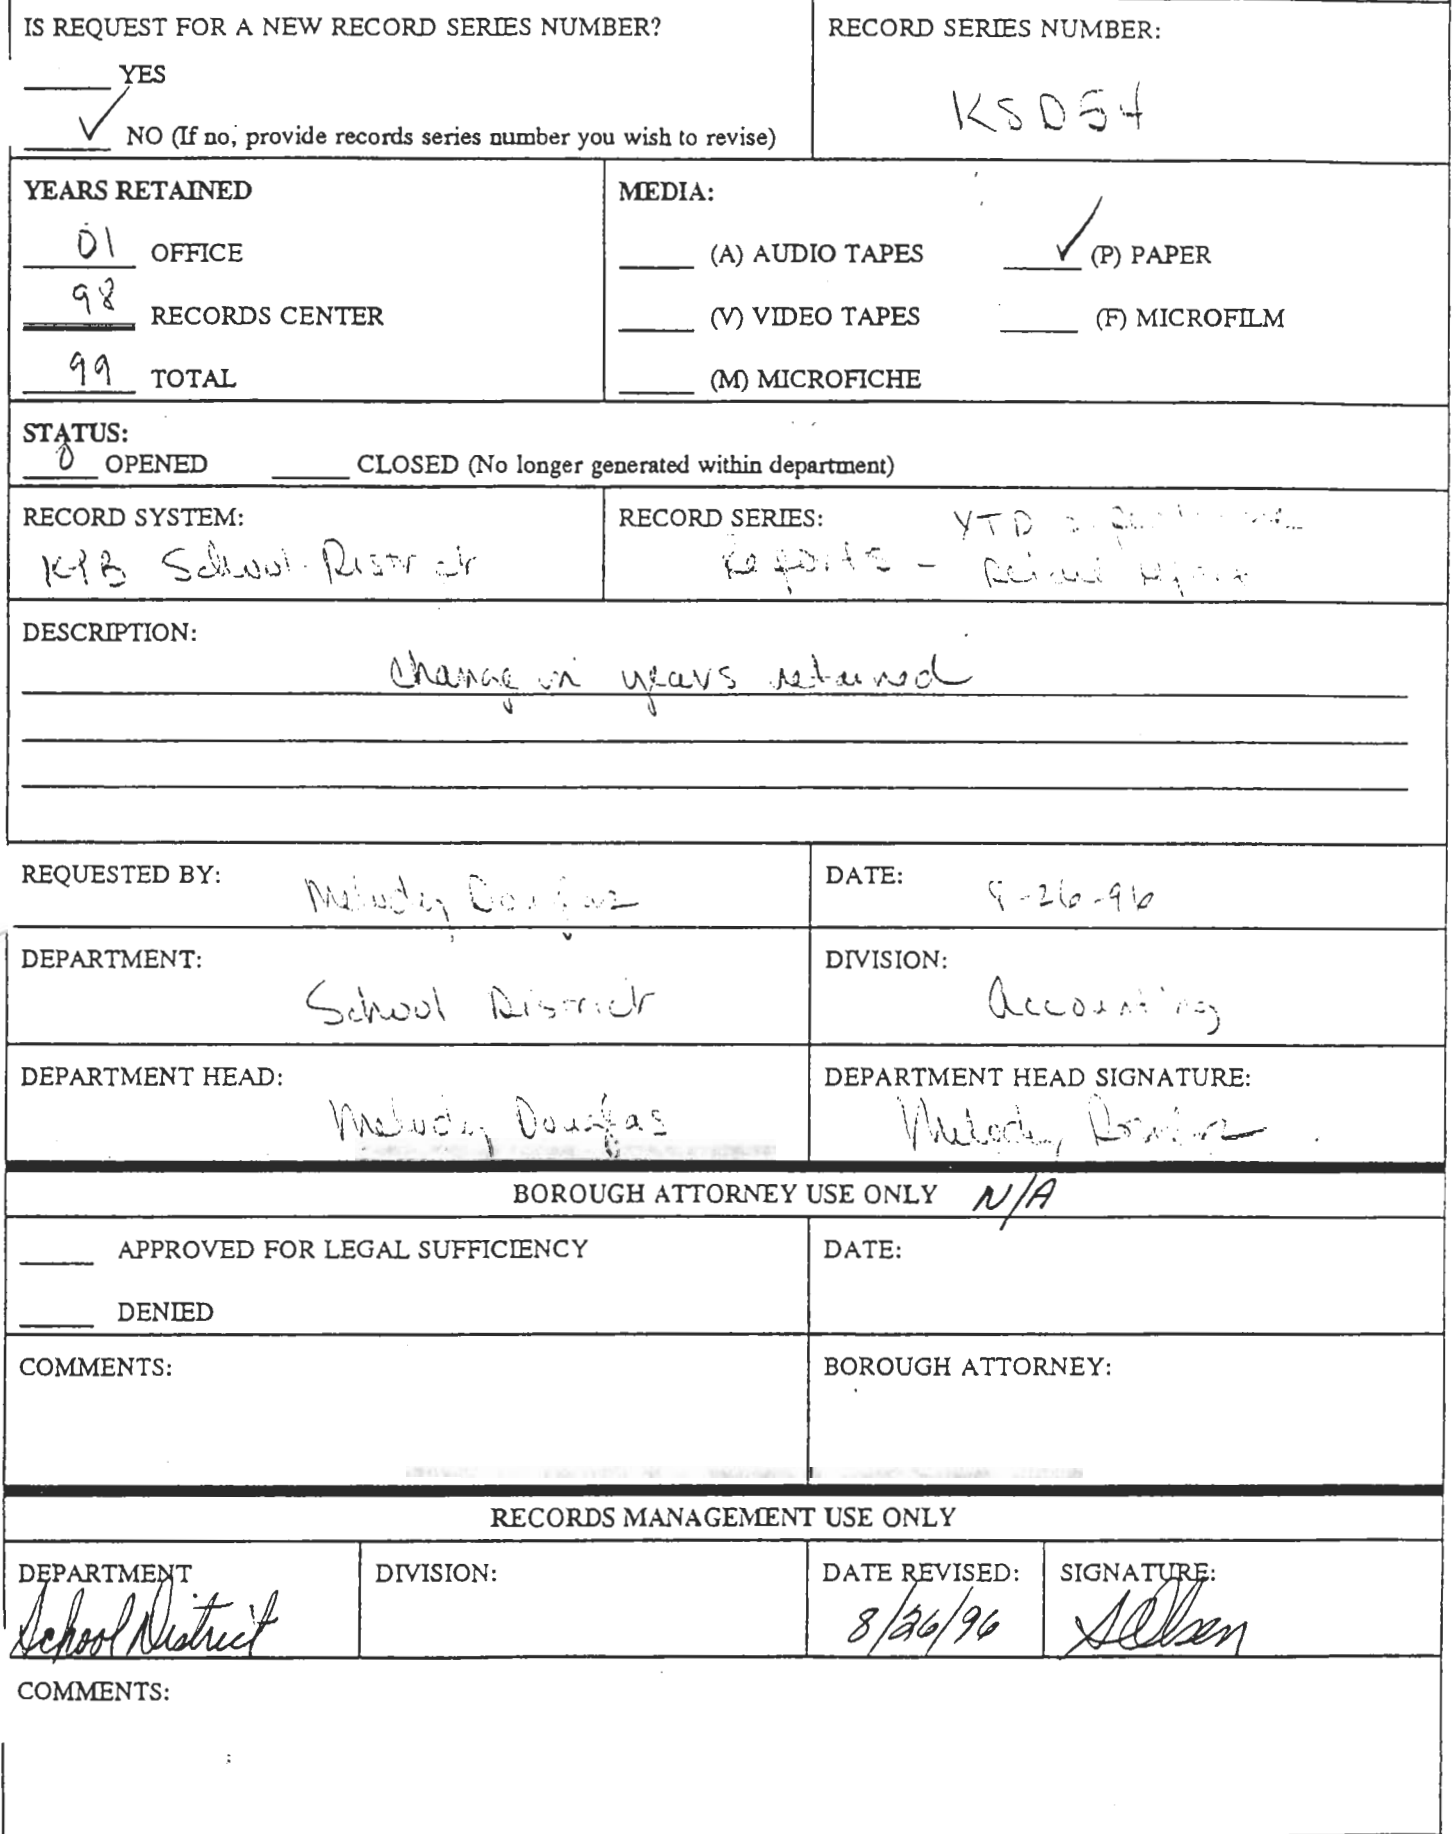 IS REQUEST FOR A NEW RECORD SERIES NUMBER?
YES
✓ NO (If no, provide records series number you wish to revise)
RECORD SERIES NUMBER:
KSD54
YEARS RETAINED
01 OFFICE
98 RECORDS CENTER
99 TOTAL
MEDIA:
(A) AUDIO TAPES ✓ (P) PAPER
(V) VIDEO TAPES (F) MICROFILM
(M) MICROFICHE
STATUS:
0 OPENED CLOSED (No longer generated within department)
RECORD SYSTEM:
KPB School District
RECORD SERIES: YTD
Reports -
DESCRIPTION:
Change in years retained
REQUESTED BY: Melody Douglas
DATE: 8-26-96
DEPARTMENT:
School District
DIVISION:
Accounting
DEPARTMENT HEAD:
Melody Douglas
DEPARTMENT HEAD SIGNATURE:
Melody Douglas
BOROUGH ATTORNEY USE ONLY N/A
APPROVED FOR LEGAL SUFFICIENCY
DENIED
DATE:
COMMENTS:
BOROUGH ATTORNEY:
RECORDS MANAGEMENT USE ONLY
DEPARTMENT
School District
DIVISION:
DATE REVISED:
8/26/96
SIGNATURE:
SOlsen
COMMENTS: